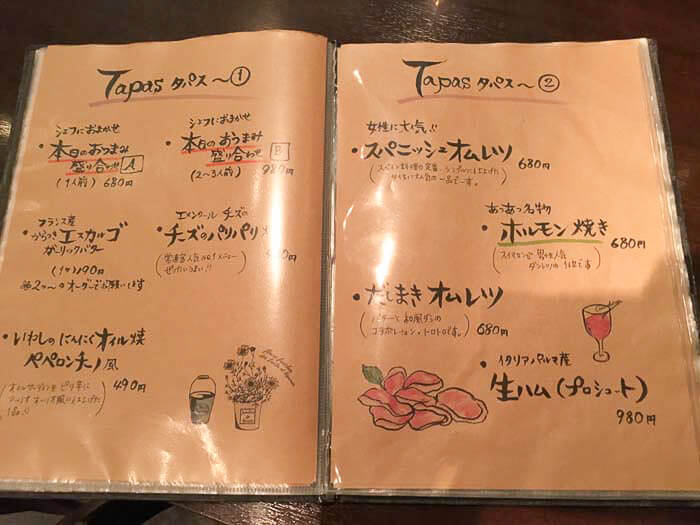 Tapas タパス〜①
シェフにおまかせ
・本日のおつまみ
盛り合わせ A
(1人前) 680円
シェフにおまかせ
・本日のおつまみ
盛り合わせ B
(2〜3人前) 980円
フランス産
・からつきエスカルゴ
ガーリックバター
(1ケ) 190円
エメンタールチーズの
・チーズのパリパリ
ぜひたいらい!!
・いわしのにんにくオイル焼
ペペロンチーノ風
490円
Tapas タパス〜②
女性に大人気!!
・スパニッシュオムレツ 680円
一品です。
あつあつ名物
・ホルモン焼き 680円
・だしまきオムレツ
バターと和風だしの
コラボレーション。トロトロです。
680円
・イタリアパルマ産
生ハム(プロシュート)
980円